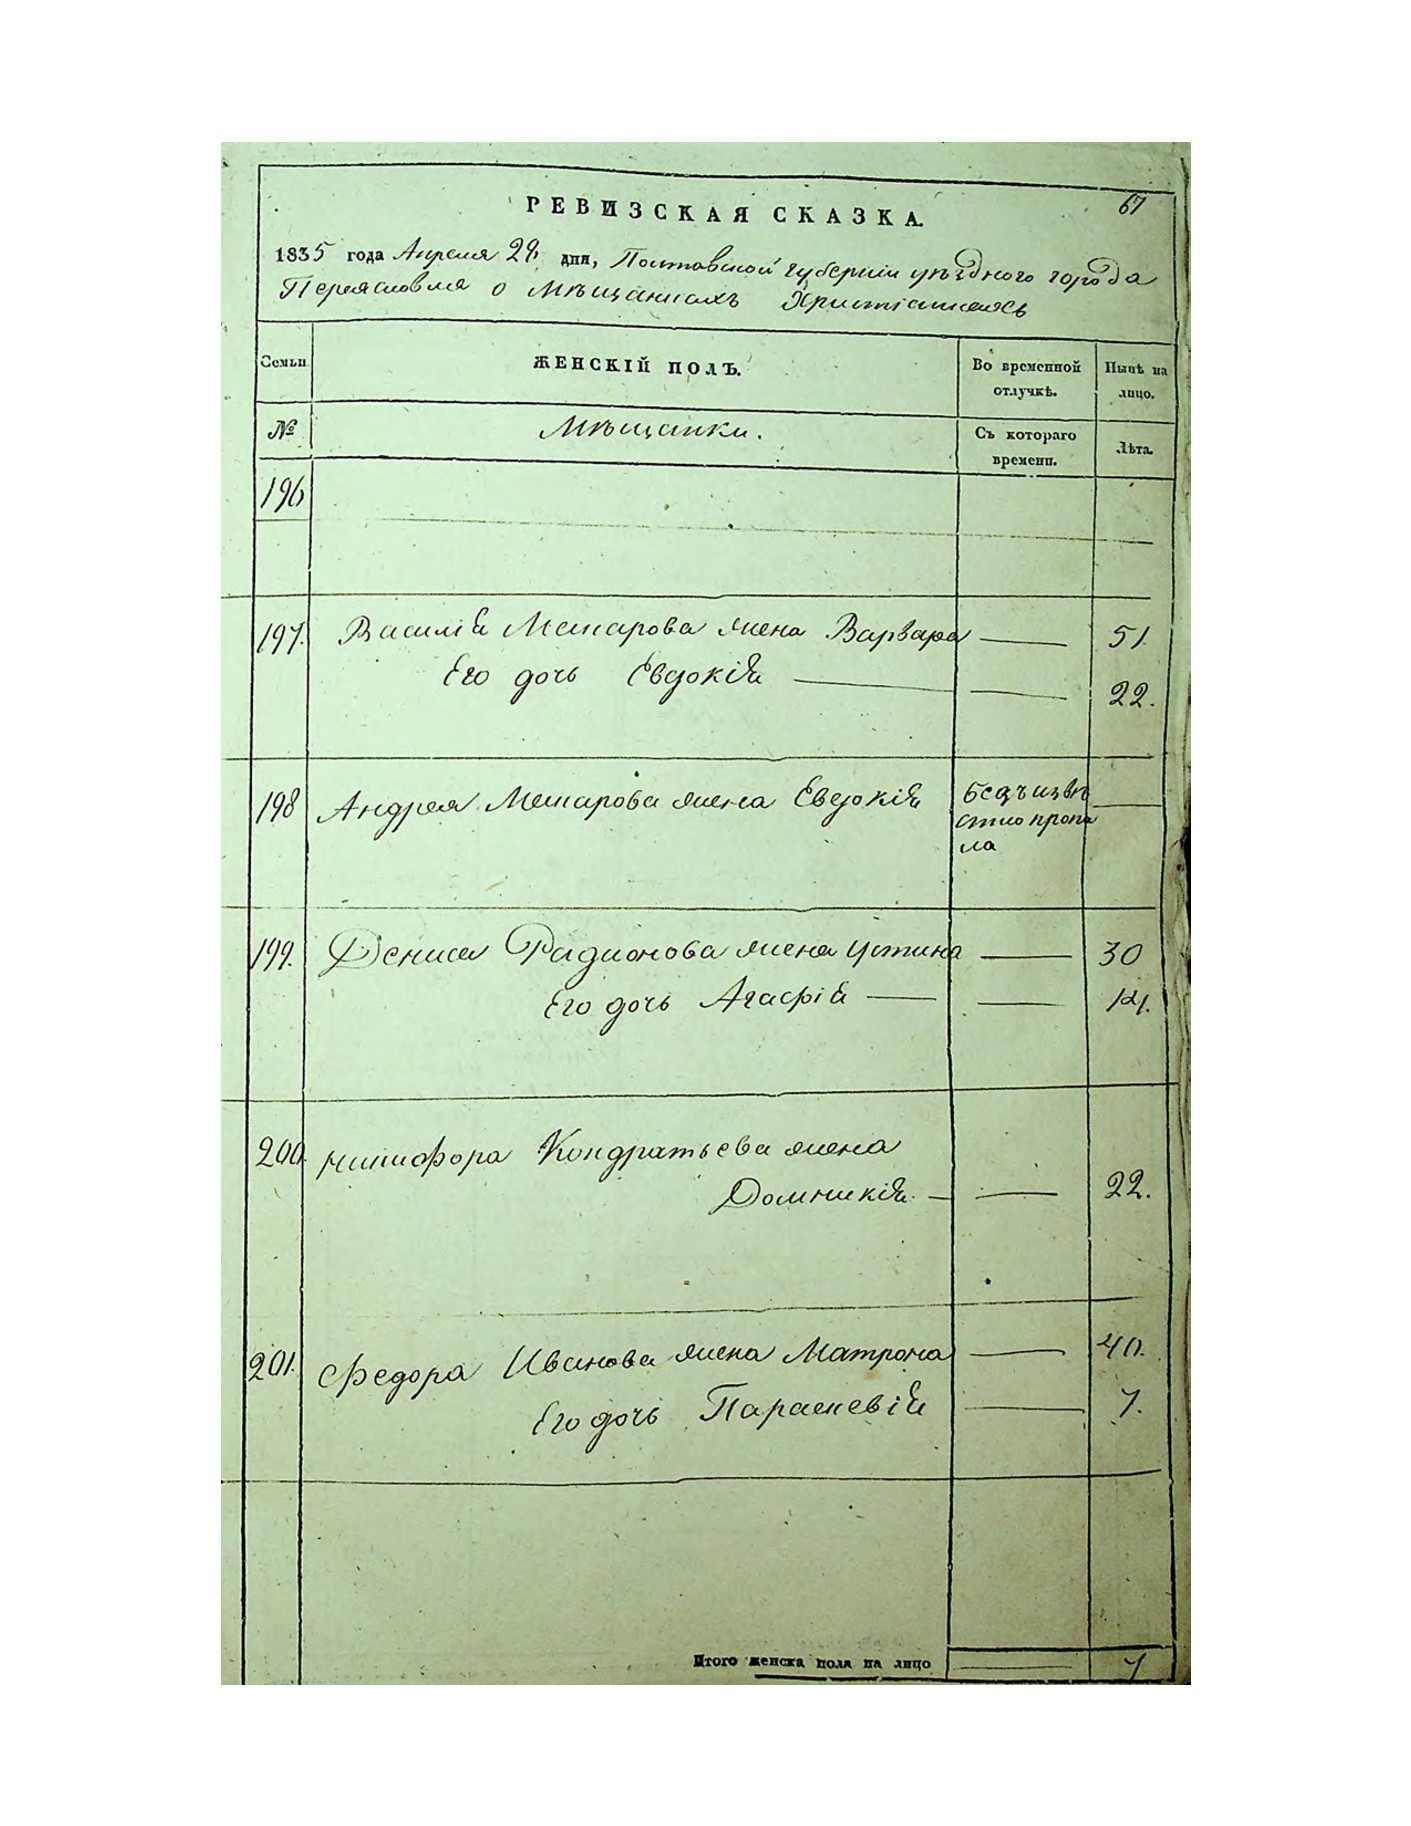 67
РЕВИЗСКАЯ СКАЗКА.
1835 года Апреля 28 дня, Полтавской губернии уѣздного города
Переяславля о Мѣщанахъ Христіанахъ
Семьи
ЖЕНСКІЙ ПОЛЪ.
Во временной отлучкѣ.
Нынѣ на лицо.
№
Мѣщанки.
Съ котораго времени.
Лѣта.
196
197. Василія Макарова жена Варвара — 51.
Его дочь Евдокія — — 22.
198 Андрея Макарова жена Евдокія Безъ извѣ —
стно пропа
ла
199. Дениса Радионова жена Устина — 30
Его дочь Агафія — — 14.
200. Никифора Кондратьева жена
Домникія — — 22.
201. Федора Иванова жена Матрона — 40.
Его дочь Параскевія — 7.
Итого женска пола на лицо — 7